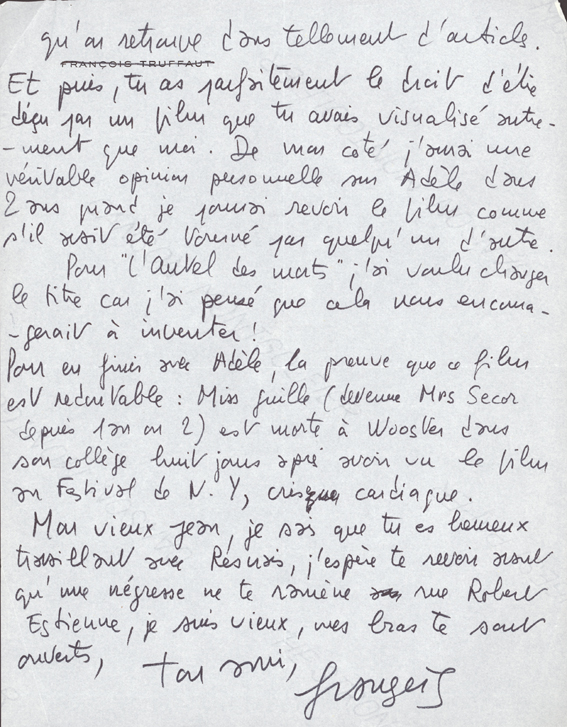 qu'on retrouve dans tellement d'article.
FRANÇOIS TRUFFAUT
Et puis, tu as parfaitement le droit d'être
déçu par un film que tu avais visualisé autre-
-ment que moi. De mon coté j'aurai une
véritable opinion personnelle sur Adèle dans
2 ans quand je pourrai revoir le film comme
s'il avait été tourné par quelqu'un d'autre.
Pour "l'Autel des morts" j'ai voulu changer
le titre car j'ai pensé que cela nous encoura-
-gerait à inventer!
Pour en finir avec Adèle, la preuve que ce film
est redoutable : Miss Guille (devenue Mrs Secor
depuis 1 an ou 2) est morte à Wooster dans
son collège huit jours après avoir vu le film
au Festival de N.Y, crise cardiaque.
Mon vieux Jean, je sais que tu es heureux
travaillant avec Resnais, j'espère te revoir avant
qu'une négresse ne te ramène rue Robert
Estienne, je suis vieux, mes bras te sont
ouverts, ton ami,
françois